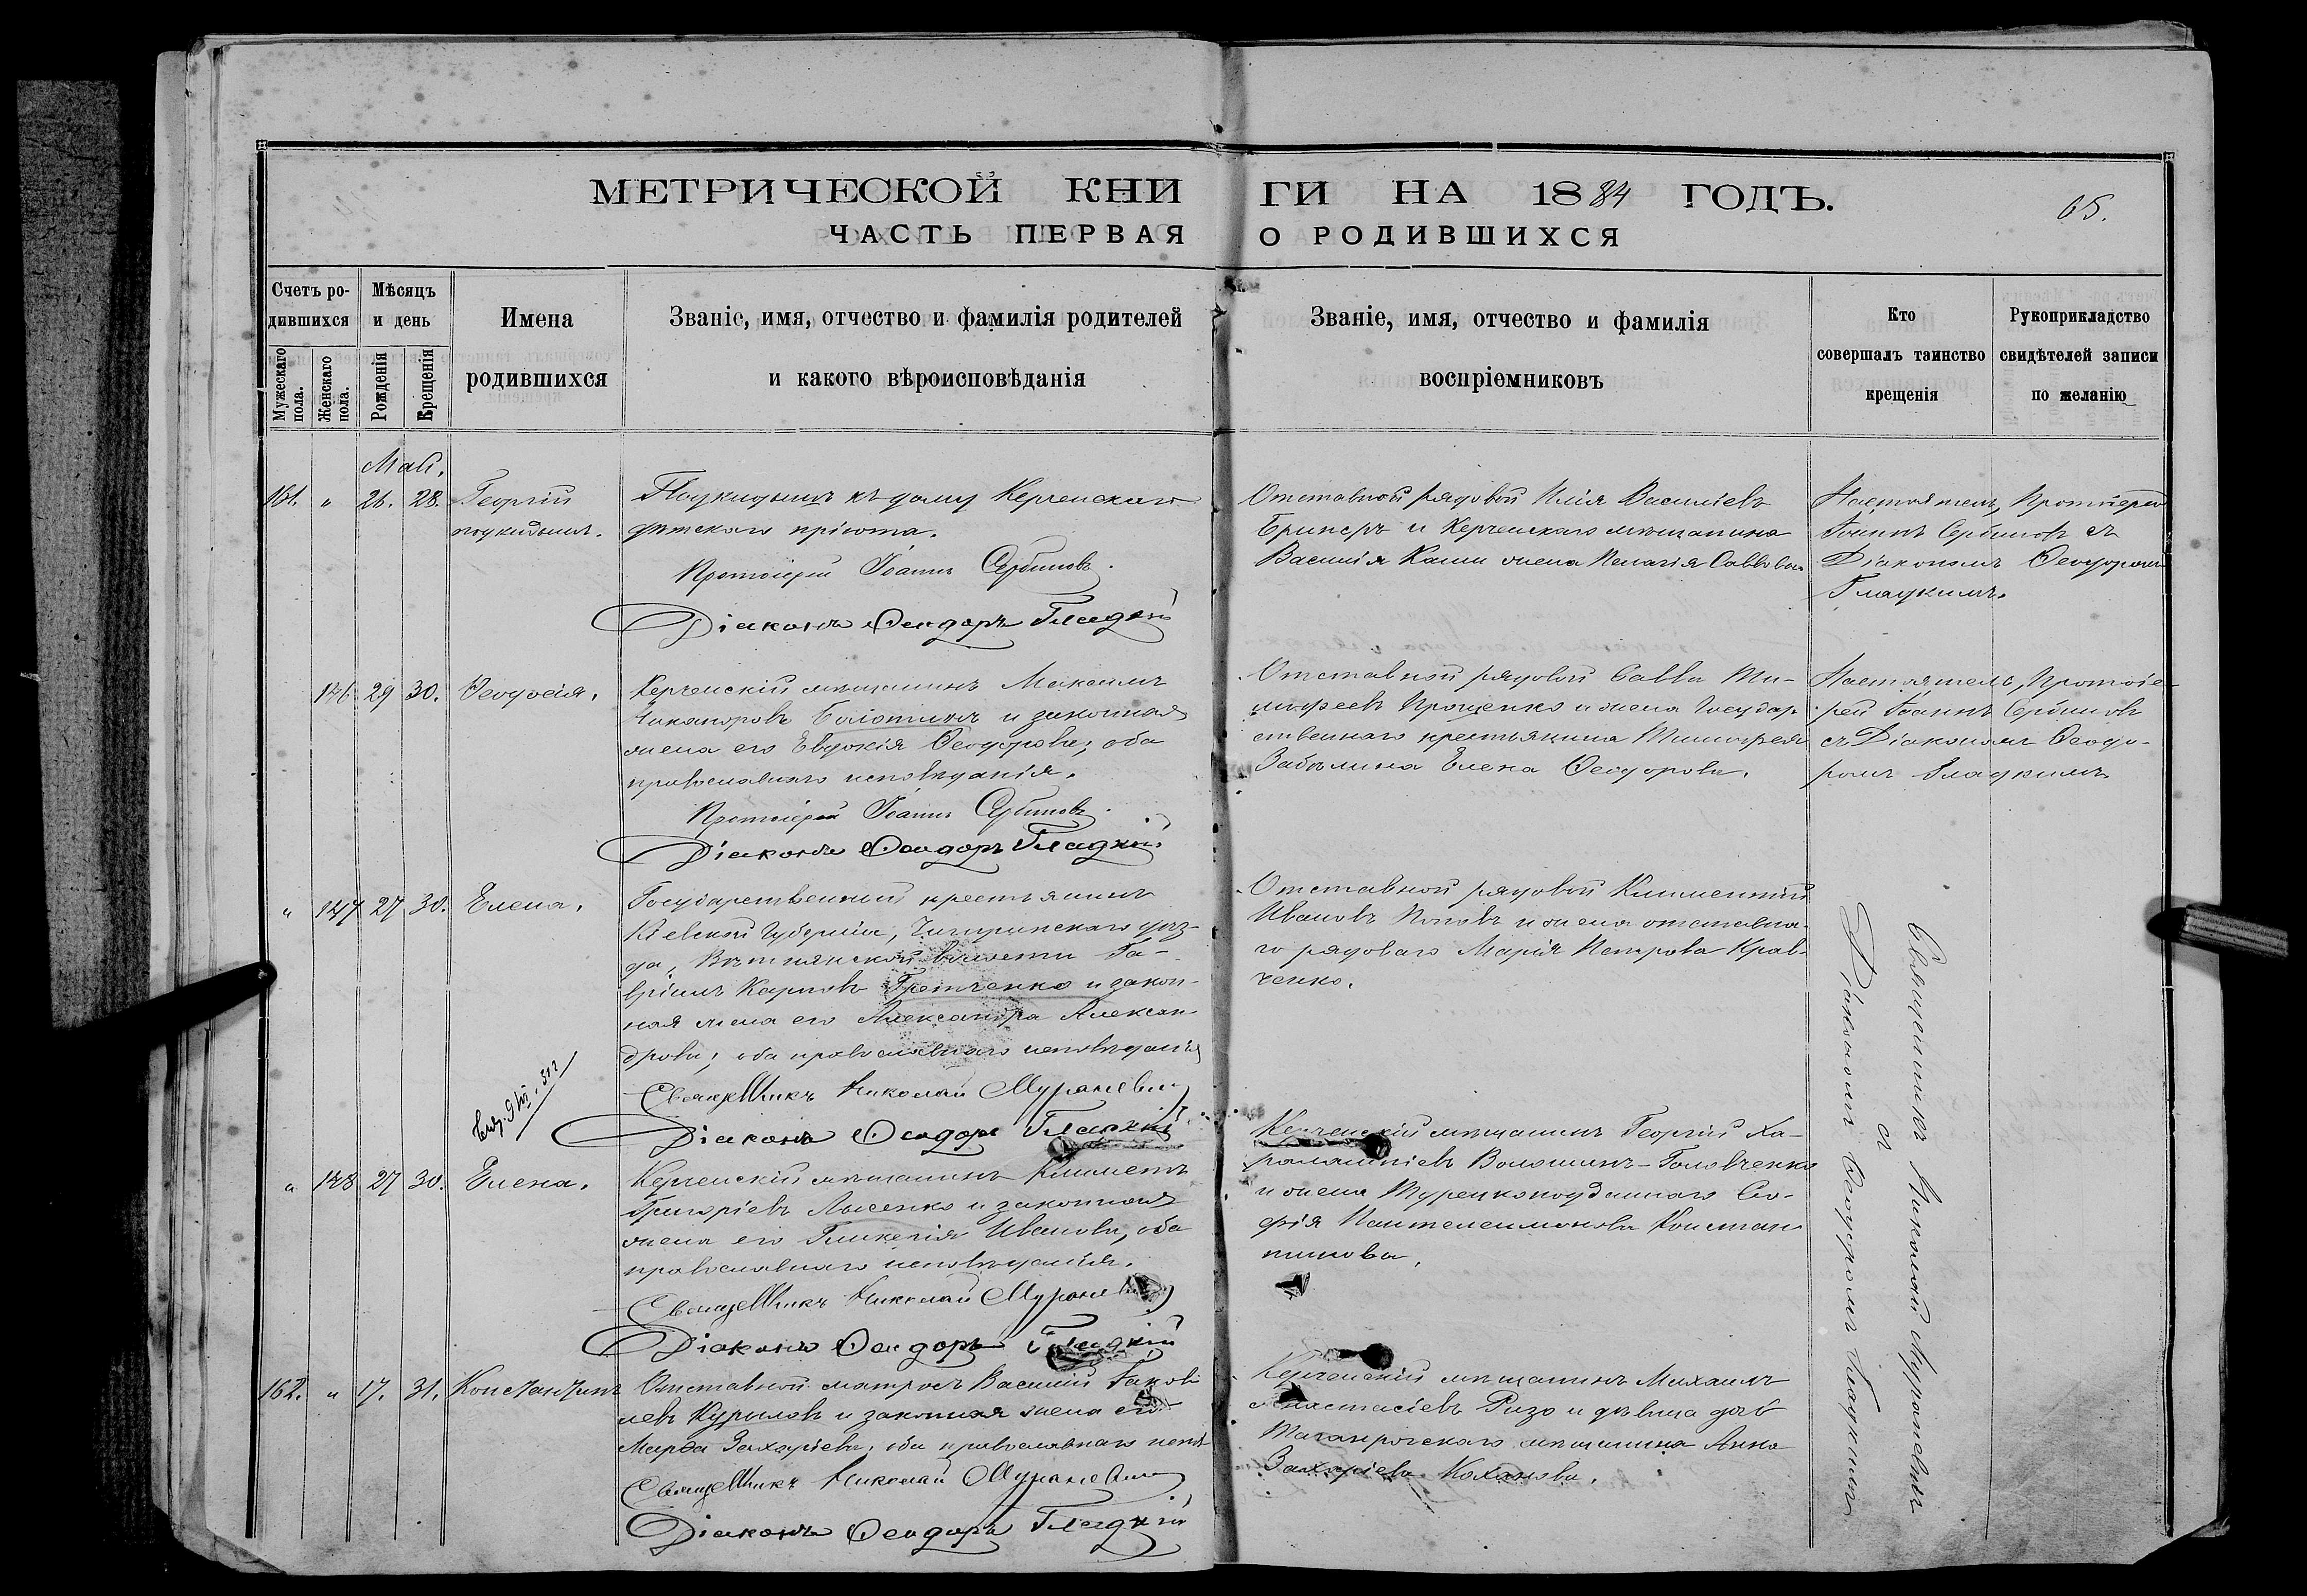 МЕТРИЧЕСКОЙ КНИГИ НА 1884 ГОДЪ.
65.
ЧАСТЬ ПЕРВАЯ О РОДИВШИХСЯ
Счетъ родившихся
Мужескаго пола.
Женскаго пола.
Мѣсяцъ и день
Рожденія
Крещенія
Имена
родившихся
Званіе, имя, отчество и фамилія родителей
и какого вѣроисповѣданія
Званіе, имя, отчество и фамилія
воспріемниковъ
Кто
совершалъ таинство
крещенія
Рукоприкладство
свидѣтелей записи
по желанію
Май.
161. " 26. 28. Георгій
подкидышъ.
Подкидышъ къ дому Керченскаго
дѣтскаго пріюта.
Протоіерей Іоаннъ Сербиновъ.
Діаконъ Ѳеодоръ Гладкій
Отставной рядовой Илія Васильевъ
и Керченскаго мѣщанина
Василія Каши жена Пелагія Саввова
Настоятель, Протоіерей
Іоаннъ Сербиновъ съ
Діакономъ Ѳеодоромъ
Гладкимъ.
146 29 30. Ѳеодосія.
Керченскій мѣщанинъ Максимъ
Никаноровъ Болотинъ и законная
жена его Евдокія Ѳеодорова; оба
православнаго исповѣданія.
Протоіерей Іоаннъ Сербиновъ.
Діаконъ Ѳеодоръ Гладкій.
Отставной рядовой Савва Ти-
моѳеевъ Прощенко и жена Государ
ственнаго крестьянина Тимоѳея
Забѣлина Елена Ѳеодорова.
Настоятель, Протоіе-
рей Іоаннъ Сербиновъ
съ Діакономъ Ѳеодо-
ромъ Гладкимъ
" 147 27 30. Елена.
Государственный крестьянинъ
Кіевской Губерніи, Чигиринскаго уѣз-
да, волости Га-
вріилъ Карповъ и закон-
ная жена его Александра Алексан
дрова; оба православнаго исповѣданія
Священникъ Николай Мураневичъ
Діаконъ Ѳеодоръ Гладкій
Отставной рядовой Климентій
Ивановъ Поповъ и жена отставна-
го рядоваго Марія Петрова Крав-
ченко.
" 148 27 30. Елена.
Керченскій мѣщанинъ Климентъ
Григоріевъ Лысенко и законная
жена его Гликерія Иванова, оба
православнаго исповѣданія.
Священникъ Николай Мураневичъ
Діаконъ Ѳеодоръ Гладкій
Керченскій мѣщанинъ Георгій Ха-
ралампіевъ Волошинъ-Головченко
и жена Турецкоподданнаго Со-
фія Пантелеимонова Констан
тинова.
Священникъ Николай Мураневичъ
съ
Діакономъ Ѳеодоромъ Гладкимъ
162. " 17. 31. Константинъ
Отставной матросъ Василій Іаков
левъ Курыловъ и законная жена его
Марѳа Захаріева, оба православнаго испов
Священникъ Николай Мураневичъ
Діаконъ Ѳеодоръ Гладкій
Керченскій мѣщанинъ Михаилъ
Анастасіевъ Ризо и дѣвица дочь
Таганрогскаго мѣщанина Анна
Захаріева Коханова.